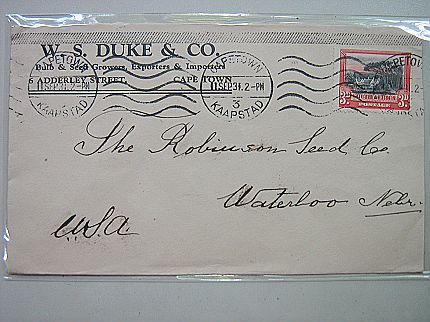 W. S. DUKE & CO.
Bulb & Seed Growers, Exporters & Importers
6 ADDERLEY STREET, CAPE TOWN
CAPETOWN
11 SEP 31. 2-PM
3
KAAPSTAD
CAPETOWN
11 SEP 31. 2-PM
3
KAAPSTAD
3D 3D
POSTAGE
The Robinson Seed Co
Waterloo Nebr.
U.S.A.